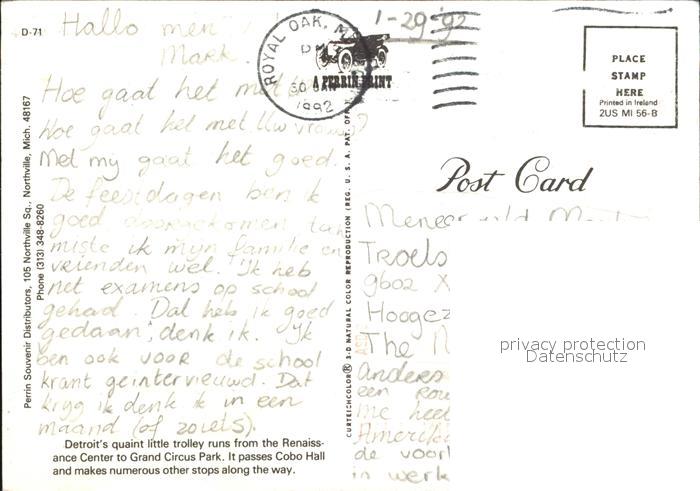 D-71
Hallo men
Mark.
Hoe gaat het met
Hoe gaat het met Uw vrouw?
Met my gaat het goed.
De feestdagen ben ik
goed doorgekomen
miste ik mijn familie en
vrienden wel. Ik heb
net examens op school
gehad. Dat heb ik goed
gedaan, denk ik. Ik
ben ook voor de school
krant geinterviewd. Dat
kryg ik denk ik in een
maand (of zoiets).
Detroit's quaint little trolley runs from the Renaiss-
ance Center to Grand Circus Park. It passes Cobo Hall
and makes numerous other stops along the way.
Perrin Souvenir Distributors, 105 Northville Sq., Northville, Mich. 48167
Phone (313) 348-8260
ROYAL OAK, M
PM
30 JAN
1992
A PERRIN PRINT
1-29-'92
CURTEICHCOLOR® 3-D NATURAL COLOR REPRODUCTION (REG. U. S. A. PAT. OFF.
PLACE
STAMP
HERE
Printed in Ireland
2US MI 56-B
Post Card
Meneer
Troels
9602 X
Hoogez
The N
Anders
een
me heel
Amerika
de voor
in werk
privacy protection
Datenschutz